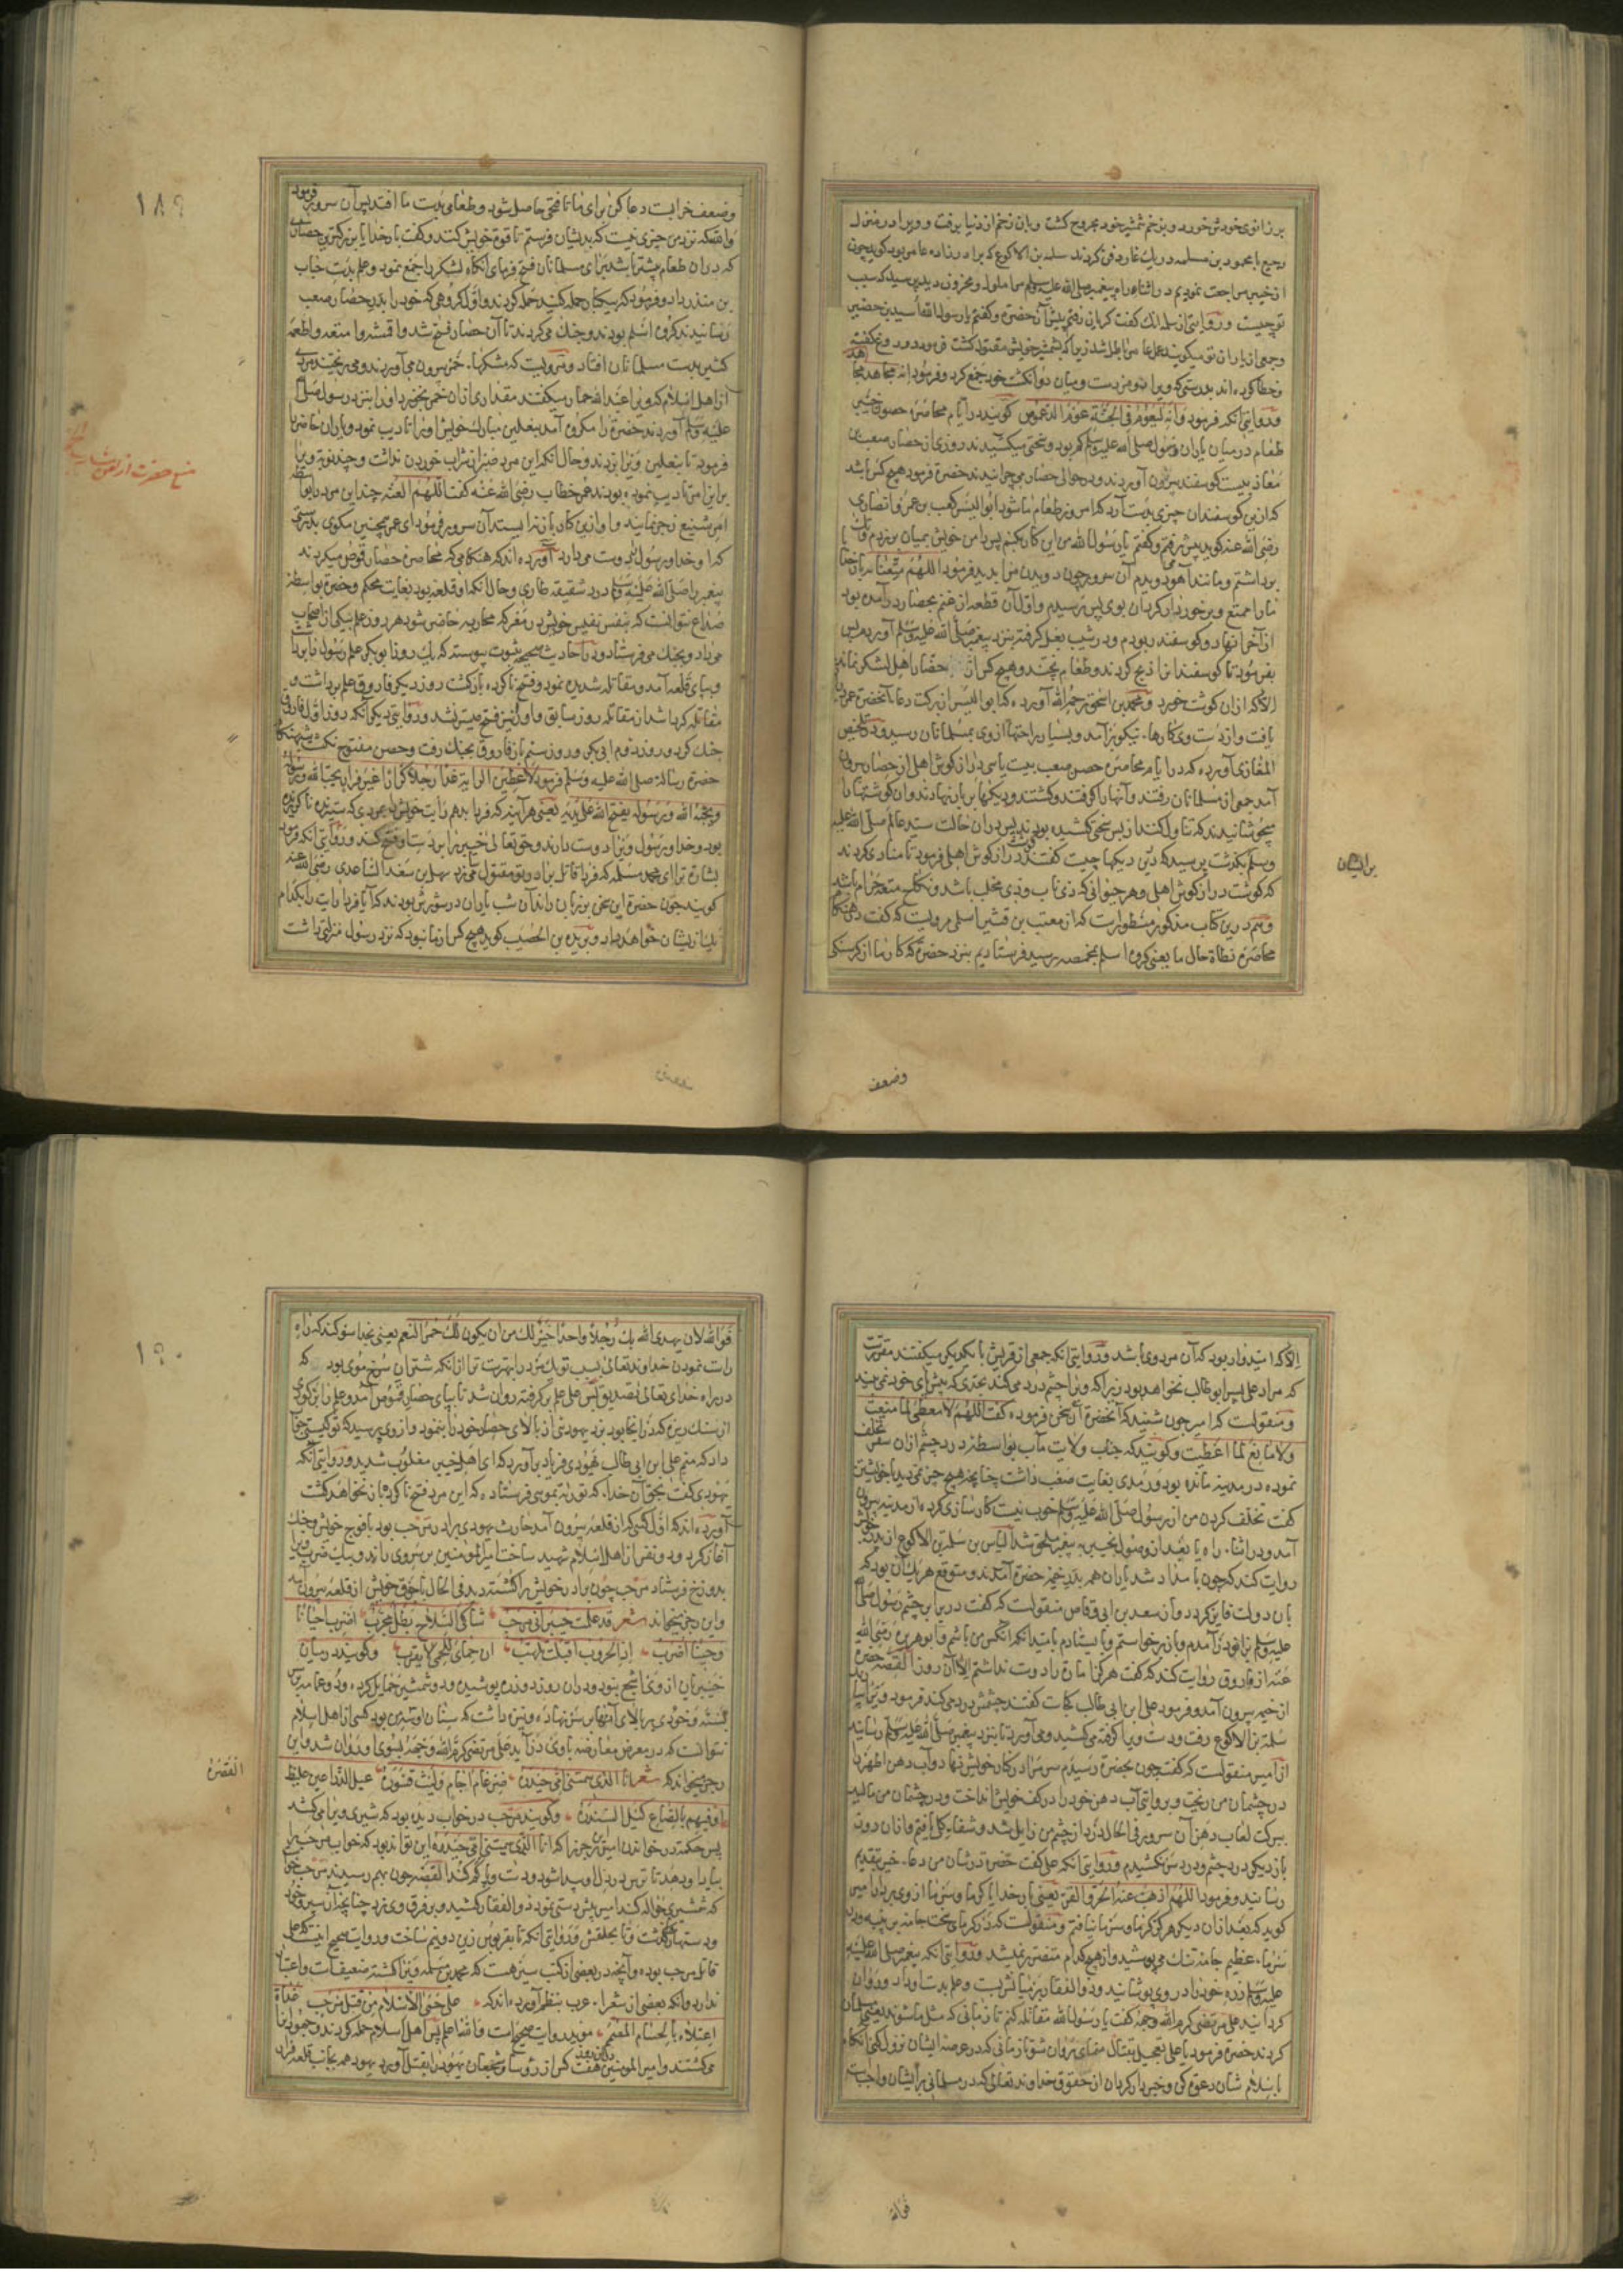 بر زانوی خودش خورد و بزخم شمشیر خود مجروح کشت و بان زخم از دنیا برفت و ویرا در منزل
رجیع با محمود بن مسلمه در یک غار دفن کردند سلمه بن الاکوع که برادرزاده عامر بود کوید چون
از خیبر مراجعت نمودیم در اثناء راه پیغمبر صلی الله علیه وسلم مرا ملول و محزون دید پرسید که سبب
تو چیست و روایتی از سلمه آنک کفت کریان رفتم پیش آن حضرت و کفتم یا رسول الله اسید بن حضیر
وجمعی از یاران تو میکویند عمل عامر باطل شد زیرا که بشمشیر خویش مقتول کشت فرمود دروغ کفته
و خطا کرده اند بدرستی که ویرا دو مزدست و میان دو انکشت خود جمع کرد و فرمود انه لجاهد مجاهد
و روایتی آنکه فرمود وانه لیعوم فی الجنة عوم الدعموص کویند در ایام محاصره حصون خیبر
طعام در میان یاران رسول صلی الله علیه وسلم کم بود و سختی میکشیدند روزی از حصار صعب بن
معاذ بیست کوسفند بیرون آوردند و در حوالی حصار می چرانیدند حضرت فرمود هیچ کس باشد
که ازین کوسفندان چیزی بدست آرد که امروز طعام ما شود ابوالیسر کعب بن عمرو انصاری
رضی الله عنه کوید پیش رفتم و کفتم یا رسول الله من این کار بکنم پس دامن خویش بمیان برزدم
برداشتم و مانند آهو دویدم آن سرور چون دویدن مرا بدید فرمود اللهم متعنا به
ما را ممتع و برخوردار کردان بوی پس برسیدم و اول آن قطعه از غنم بحصار درآمده بود
از آخر آنها دو کوسفند ربودم و در زیر بغل کرفته بنزد پیغمبر صلی الله علیه وسلم آوردم پس
بفرمود تا کوسفندانرا ذبح کردند و طعام پختند و هیچ کس از حصار اهل لشکر نماند
الا که ازان کوشت خورد و محمد بن اسحق رحمه الله آورده که ابوالیسر از برکت دعاء آنحضرت عمر دراز
یافت و از دست وی کارهاء نیکو برآمد و بسیار راحتها از وی بمسلمانان رسید و در تلخیص
المغازی آورده که در ایام محاصره حصن صعب بیست یا سی دراز کوش اهلی از حصار بیرون
آمد جمعی از مسلمانان رفتند و آنها را کرفتند و کشتند و دیکها بر بار نهادند و آن کوشتها را
میجوشانیدند که تناول کنند از بس سختی کشیده بودند پس دران حالت سید عالم صلی الله علیه
وسلم بکذشت پرسید که درین دیکها چیست کفتند کوشت دراز کوش اهلی فرمود تا منادی کردند
که کوشت دراز کوش اهلی و هر حیوانی که ذی ناب و ذی مخلب باشد و نکاح متعه حرام باشد
و هم درین کتاب مذکور مسطورست که از معتب بن قشیر اسلمی مرویست که کفت در هنکام
محاصره نطاة حال ما یعنی کروه اسلم بمخمصه رسید فرستادیم بنزد حضرت که کار ما از کرسنکی
برایشان
وضعف
وضعف خرابست دعا کن برای ما تا فتحی حاصل شود و طعامی بدست ما افتد پس آن سرور فرمود
والله که نزد من چیزی نیست که بدیشان فرستم تا قوة خویش کنند و کفت بار خدایا بزرکترین حصار
که دران طعام بیشتر باشد برای مسلمانان فتح فرمای آنکاه لشکر را جمع نمود و علم بدست حباب
بن منذر داد و فرمود که بیکبار حمله کنید حمله کردند و اول کروهی که خود را بدر حصار صعب
رسانیدند کروه اسلم بودند و جنک می کردند تا آن حصار فتح شد و اقمشه و امتعه و اطعمه
کثیر بدست مسلمانان افتاد و مرویست که مشکهاء خمر بیرون می آوردند و می ریختند مردی
از اهل اسلام که ویرا عبد الله خمار میکفتند مقداری ازان خمر بخورد او را بنزد رسول صلی الله
علیه وسلم آوردند حضرت را مکروه آمد بنعلین مبارک خویش او را تادیب نمود و یاران حاضر را
فرمود تا بنعلین ویرا بزدند و حال آنکه این مرد صبر از شراب خوردن نداشت و چند نوبت ویرا
برین امر تادیب نموده بودند عمر خطاب رضی الله عنه کفت اللهم العنه چند این مرد را بواسطه
امر شنیع زجر نمایند و او ازین کار باز نه ایستد آن سرور فرمود ای عمر همچنین مکوی بدرستی
که او خدا و رسول را دوست می دارد آورده اند که هنکامی که محاصره حصار قموص میکردند
پیغمبر را صلی الله علیه وسلم درد شقیقه طاری و حال آنکه آن قلعه بود بغایت محکم و حضرت بواسطه
صداع نتوانست که بنفس نفیس خویش در معرکه محاربه حاضر شود هر روز علم بیکی از اصحاب
می داد و بجنک می فرستاد و در احادیث صحیحه ثبوت پیوسته که یک روز ابوبکر علم رسول را برداشت
و بپای قلعه آمد و مقاتله شدیده نمود و فتح ناکرده بازکشت روز دیکر فاروق علم برداشت و
مقاتله کرد اشد از مقاتله روز سابق و او را نیز فتح میسر نشد و روایتی دیکر آنکه روز اول فاروق
جنک کرد و روز دوم ابی بکر و روز سیم باز فاروق بجنک رفت و حصن مفتوح نکشت شبهنکام
حضرت رسالت صلی الله علیه وسلم فرمود لاعطین الرایة غدا رجلا کرارا غیر فرار یحب الله ورسوله
ویحبه الله ورسوله یفتح الله علی یدیه یعنی هر آینه که فردا بدهم رایت خویش را بمردی که ستیزنده ناکریزنده
بود و خدا و رسول ویرا دوست دارند و حق تعالی خیبر را بر دست او فتح کند و روایتی آنکه فرمود
بشارت ترا ای محمد مسلمه که فردا قاتل برادر تو مقتول می کردد سهل بن سعد الساعدی رضی الله عنه
کوید چون حضرت این سخن بر زبان راند آن شب یاران در شورش بودند که آیا فردا رایت را بکدام
یک از ایشان خواهد داد و بریده بن الحصیب کوید هیچ کس از ما نبود که نزد رسول منزلتی داشت
۱۸۹
منع حضرت از
الا که امیدوار بود که آن مرد وی باشد و روایتی آنکه جمعی از قریش با یکدیکر میکفتند مقررست
که مراد علی پسر ابو طالب نخواهد بود زیرا که ویرا چشم درد می کند بحدی که پیش پای خود نمی بیند
و منقولست که امیر چون شنید که آنحضرت آن سخن فرموده کفت اللهم لا معطی لما منعت
ولا مانع لما اعطیت و کویند که جناب ولایت مآب بواسطه درد چشم ازان سفر تخلف
نموده در مدینه مانده بود و رمدی بغایت صعب داشت چنانچه هیچ چیز نمی دید با خویشتن
کفت تخلف کردن من از رسول صلی الله علیه وسلم خوب نیست کارسازی کرده از مدینه بیرون
آمد و در اثناء راه یا بعد از وصول بخیبر به پیغمبر ملحق شد ایاس بن سلمه بن الاکوع از پدر خویش
روایت کند که چون بامداد شد یاران همه بدر خیمه حضرت آمدند و متوقع هر یک آن بود که
بان دولت فایز کردد و از سعد بن ابی وقاص منقولست که کفت در برابر چشم رسول صلی الله
علیه وسلم بزانو درآمدم و باز برخواستم و بایستادم بامید آنکه آنکس من باشم و ابو هریره رضی الله
عنه از فاروق روایت کند که کفت هرکز امارت را دوست نداشتم الا آن روز القصه حضرت
از خیمه بیرون آمد و فرمود علی ابن ابی طالب کجاست کفتند چشمش درد می کند فرمود ویرا بیارید
سلمه بن الاکوع رفت و دست ویرا کرفته می کشید و می آورد تا بنزد پیغمبر صلی الله علیه وسلم رسانید
از امیر منقولست که کفت چون بحضرت رسیدم سر مرا در کنار خویش نهاد و آب دهن اطهر را
در چشمان من ریخت و بروایتی آب دهن خود را در کف خویش انداخت و در چشمان من مالید
ببرکت لعاب دهن آن سرور فی الحال درد از چشم من زایل شد و شفاء کلی یافتم و ازان روز
باز دیکر درد چشم و درد سر نکشیدم و روایتی آنکه علی کفت حضرت در شان من دعاء خیر بتقدیم
رسانید و فرمود اللهم اذهب عنه الحر والقر یعنی بار خدایا کرما و سرما از وی بردار امیر
کوید که بعد ازان دیکر هرکز کرما و سرما نیافتم و منقولست که در کرمای سخت جامه پنبه و در
سرماء عظیم جامه تنک می پوشید و از هیچ کدام متضرر نمی شد و روایتی آنکه پیغمبر صلی الله علیه
وسلم زره خود را در وی پوشانید و ذوالفقار بر میانش بست و علم بدست او داد و روان
کردانید علی مرتضی کرم الله وجهه کفت یا رسول الله مقاتله کنم تا زمانی که مثل ما شوند یعنی مسلمان
کردند حضرت فرمود یا علی تعجیل بقتال منمای روان شو تا زمانی که در عرصه ایشان نزول کنی آنکاه
باسلام شان دعوت کن و خبردار کردان از حقوق خداوند تعالی که در مسلمانی بر ایشان واجبست
فوالله
فوالله لان یهدی الله بک رجلا واحدا خیر لک من ان یکون لک حمر النعم یعنی بخدا سوکند که راه
راست نمودن خداوند تعالی بسبب تو یک مرد را بهترست ترا از آنکه شتران سرخ موی بود که
در راه خدای تعالی تصدیق کنی پس علی علم برکرفته روان شد تا بپای حصار قموص آمد و علم را بر کوی
از سنک ریزه که در آنجا بود بزد یهودیی از بالای حصار خود را بنمود و از وی پرسید که تو کیستی جواب
داد که منم علی ابن ابی طالب یهودی فریاد برآورد که ای اهل خیبر مغلوب شدید و روایتی آنکه
یهودی کفت بحق آن خدا که توریة بموسی فرستاده که این مرد فتح ناکرده باز نخواهد کشت
آورده اند که اول کسی که از قلعه بیرون آمد حارث یهودی برادر مرحب بود با فوج خویش و جنک
آغاز کرد و دو نفر از اهل اسلام شهید ساخت امیر المومنین بر سر وی راند و بیک ضرب ویرا
بدوزخ فرستاد مرحب چون برادر خویش را کشته دید فی الحال با جوق خویش از قلعه بیرون آمد
و این رجز میخواند شعر قد علمت خیبر انی مرحب شاکی السلاح بطل مجرب اضرب احیانا
وحینا اضرب اذا الحروب اقبلت تلهب ان حمای للحمی لا یقرب و کویند در میان
خیبریان از وی اشجع نبود و دران روز دو زره پوشیده و دو شمشیر حمایل کرده و دو عمامه بر سر
بسته و خودی بر بالای آنها بر سر نهاده و نیزه داشت که سنان او سه من بود کسی از اهل اسلام
نتوانست که در معرض معارضه با وی درآید علی مرتضی کرم الله وجهه بسوی او روان شد و این
رجز میخواند که شعر انا الذی سمتنی امی حیدره ضرغام آجام ولیث قسوره عبل الذراعین غلیظ
اوفیهم بالصاع کیل السندره و کویند مرحب در خواب دیده بود که شیری ویرا می کشد
پس حکمت در خواندن امیر این رجز را که انا الذی سمتنی امی حیدره این تواند بود که خواب مرحب را
بیاد او دهد تا ترس در دل او پیدا شود و دست و پا کم کند القصه چون بهم رسیدند مرحب خواست
که شمشیری حواله کند امیر پیش دستی نمود ذوالفقار کشید و بر فرق وی زد چنانچه از سپر و خود
و دستار کذشت و تا بحلقش و روایتی آنکه تا بقربوس زین دو نیم ساخت و روایت صحیح اینست که علی
قاتل مرحب بوده و آنچه در بعضی از کتب سیر هست که محمد بن مسلمه ویرا کشته ضعیفست و اعتبار
ندارد و آنکه بعضی از شعراء عرب بنظم آورده اند که علی حمی الاسلام من قتل مرحب غداة
اعتلاه بالحسام المفخم موید روایت صحیح است فاما علم پس اهل اسلام حمله کردند و یهود را
می کشتند و امیر المومنین دران روز هفت کس از روسا و شجعان یهود را بقتل آورد یهود همه بجانب قلعه فرار
القصه
۱۹۰